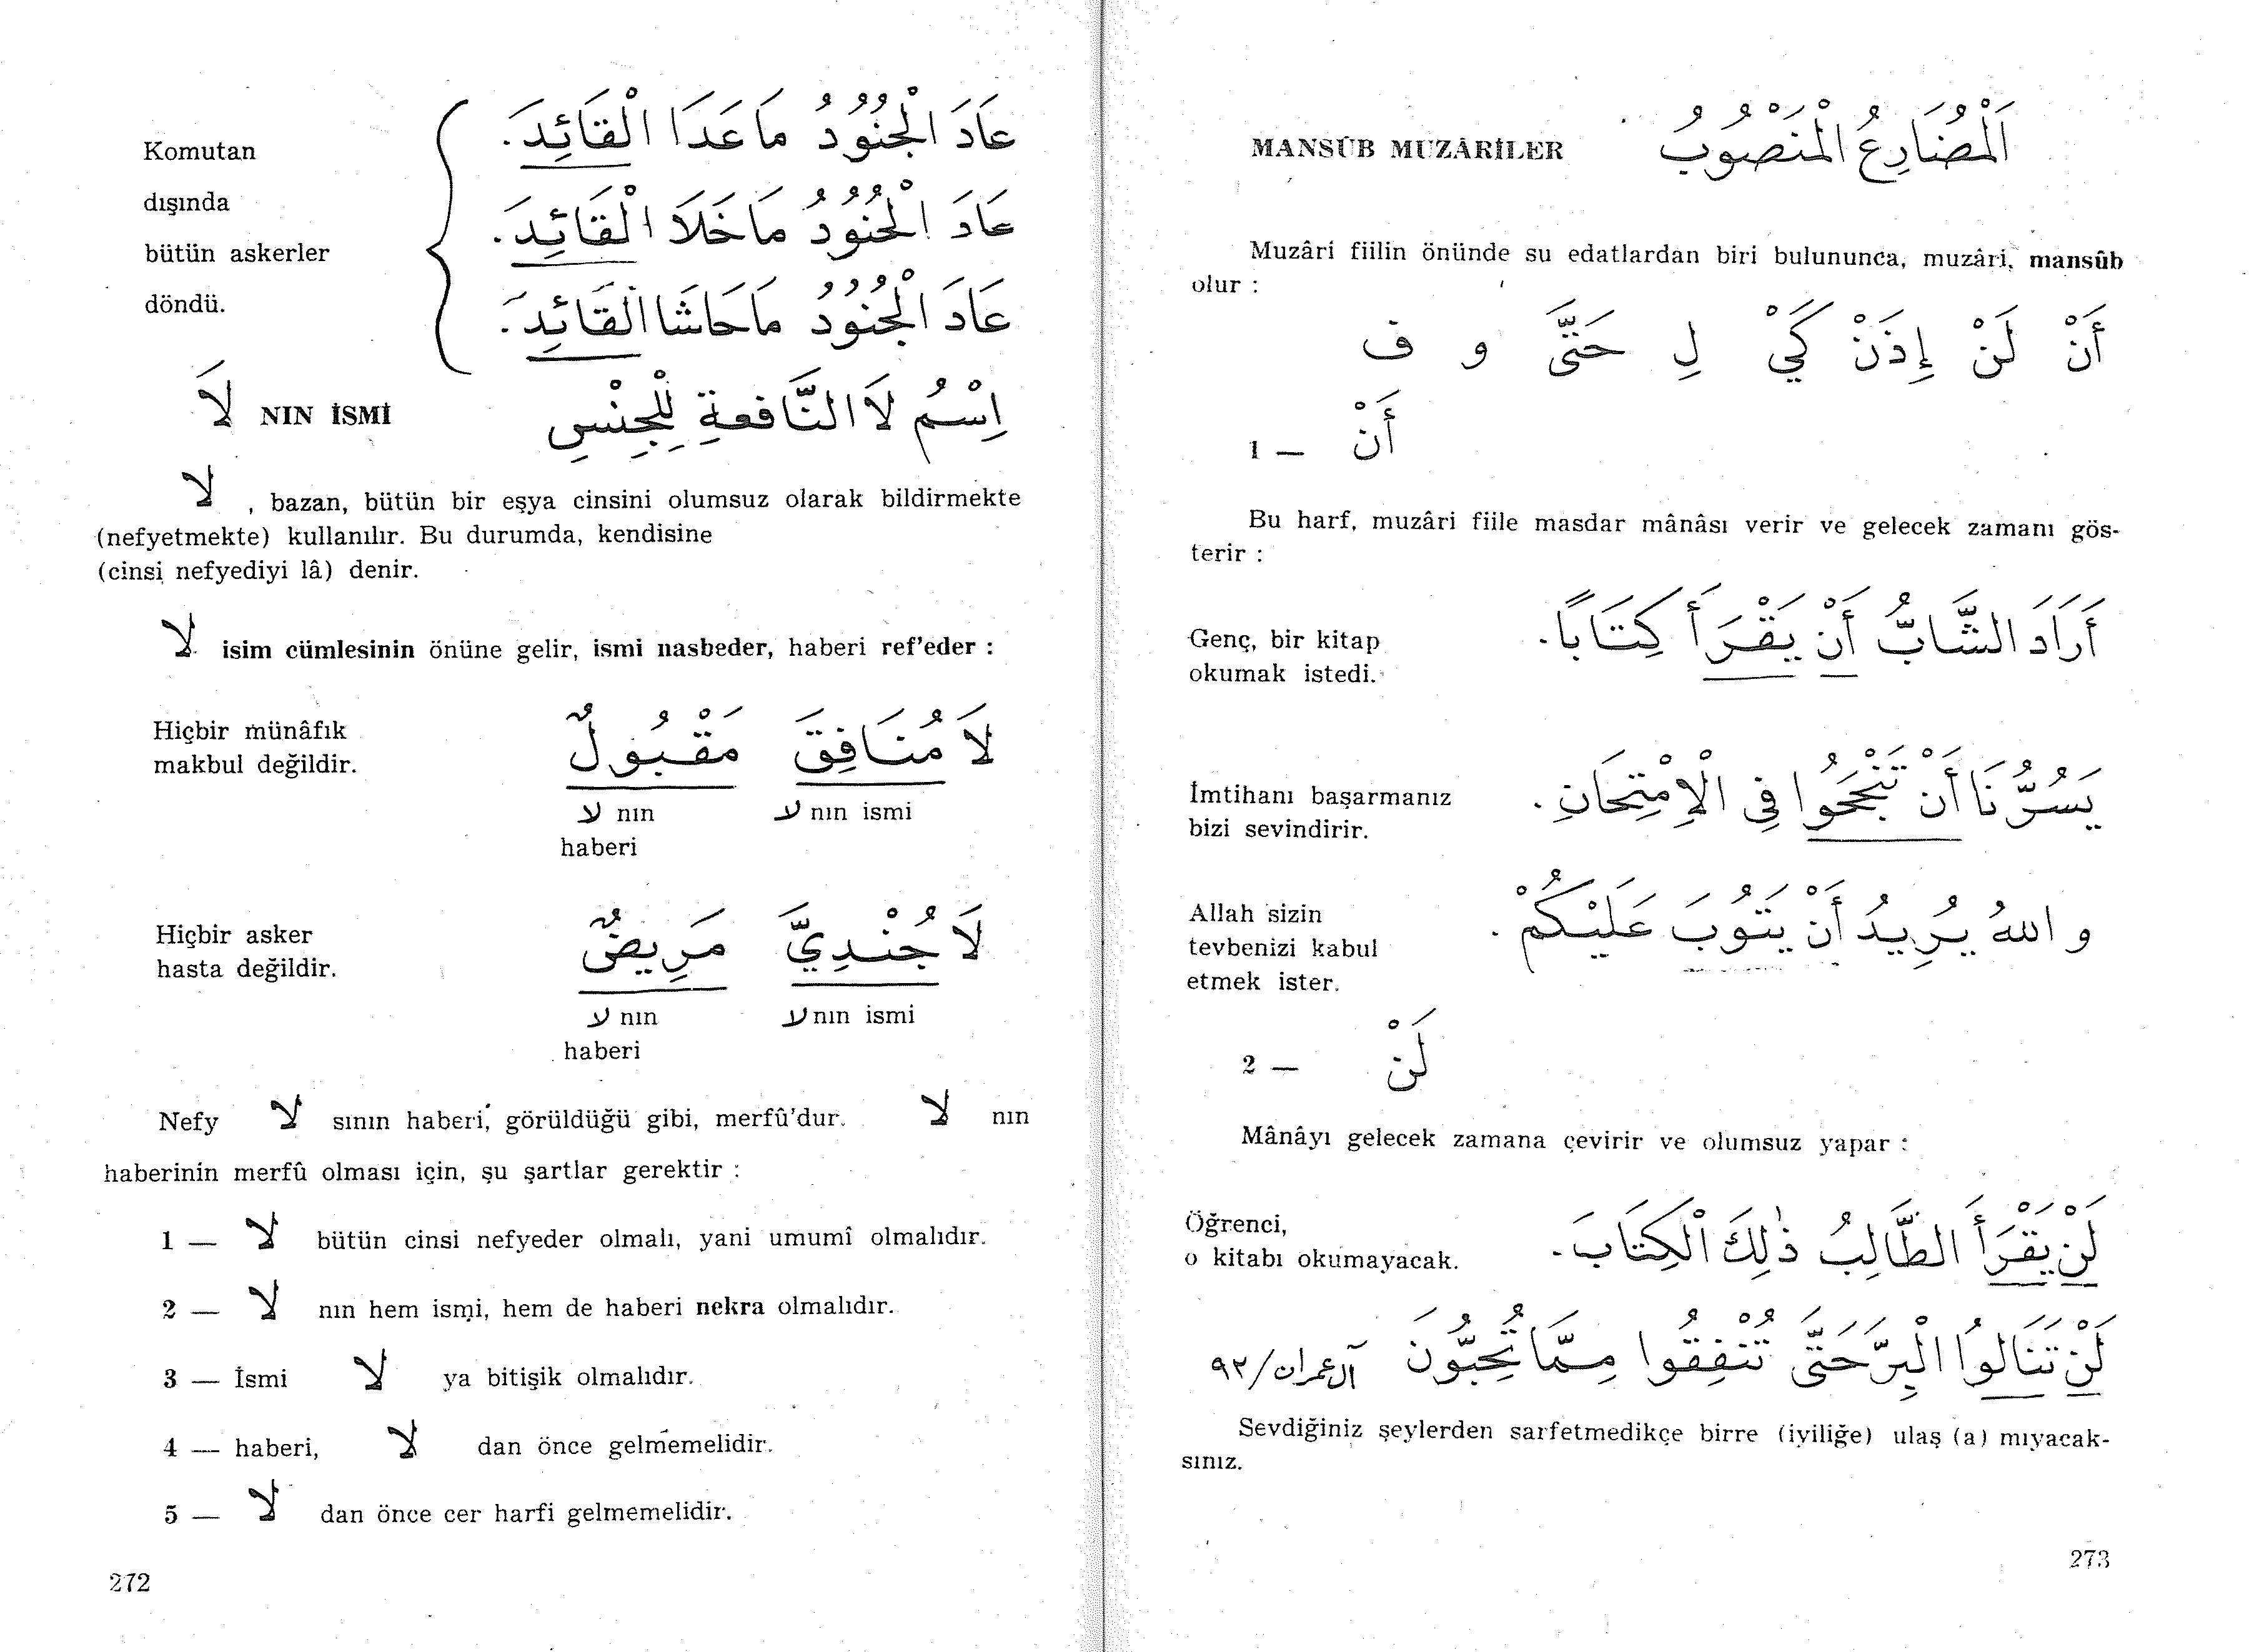 Komutan
dışında
bütün askerler
döndü.
عَادَ الْجُنُودُ مَا عَدَا الْقَائِدَ.
عَادَ الْجُنُودُ مَا خَلَا الْقَائِدَ.
عَادَ الْجُنُودُ مَا حَاشَا الْقَائِدَ.
لَا NIN İSMİ اِسْمُ لَا النَّافعةِ لِلْجِنْسِ
لا , bazan, bütün bir eşya cinsini olumsuz olarak bildirmekte
(nefyetmekte) kullanılır. Bu durumda, kendisine
(cinsi nefyediyi lâ) denir.
لا isim cümlesinin önüne gelir, ismi nasbeder, haberi ref'eder :
Hiçbir münâfık
makbul değildir.
لَا مُنَافِقَ مَقْبُولٌ
لا nın ismi لا nın
haberi
Hiçbir asker
hasta değildir.
لَا جُنْدِيَّ مَرِيضٌ
لا nın ismi لا nın
haberi
Nefy لا sının haberi, görüldüğü gibi, merfû'dur. لا nın
haberinin merfû olması için, şu şartlar gerektir :
1 — لا bütün cinsi nefyeder olmalı, yani umumî olmalıdır.
2 — لا nın hem ismi, hem de haberi nekra olmalıdır.
3 — İsmi لا ya bitişik olmalıdır.
4 — haberi, لا dan önce gelmemelidir.
5 — لا dan önce cer harfi gelmemelidir.
272
MANSÛB MUZÂRİLER اَلْمُضَارِعُ الْمَنْصُوبُ
Muzâri fiilin önünde su edatlardan biri bulununca, muzâri, mansûb
olur :
أَنْ لَنْ إِذَنْ كَيْ لِ حَتَّى و ف
1 — أَنْ
Bu harf, muzâri fiile masdar mânâsı verir ve gelecek zamanı gös-
terir :
Genç, bir kitap
okumak istedi.
أَرَادَ الشَّابُّ أَنْ يَقْرَأَ كِتَابًا.
İmtihanı başarmanız
bizi sevindirir.
يَسُرُّنَا أَنْ تَنْجَحُوا فِي الْاِمْتِحَانِ.
Allah sizin
tevbenizi kabul
etmek ister.
و اللهُ يُرِيدُ أَنْ يَتُوبَ عَلَيْكُمْ.
2 — لَنْ
Mânâyı gelecek zamana çevirir ve olumsuz yapar :
Öğrenci,
o kitabı okumayacak.
لَنْ يَقْرَأَ الطَّالِبُ ذٰلِكَ الْكِتَابَ.
لَنْ تَنَالوُا الْبِرَّ حَتَّى تُنْفِقُوا مِمَّا تُحِبُّونَ آل عمران/٩٢
Sevdiğiniz şeylerden sarfetmedikçe birre (iyiliğe) ulaş (a) mıyacak-
sınız.
273